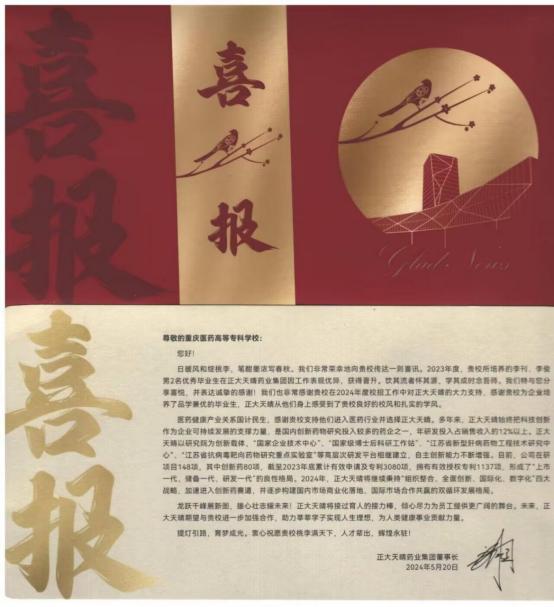 喜报
喜报
Glad News
喜报
尊敬的重庆医药高等专科学校:
您好!
日暖风和绽桃李，笔酣墨浓写春秋。我们非常荣幸地向贵校传达一则喜讯。2023年度，贵校所培养的李刊、李俊
男2名优秀毕业生在正大天晴药业集团因工作表现优异，获得晋升。饮其流者怀其源，学其成时念吾师。我们特与您分
享喜悦，并表达诚挚的谢意! 我们也非常感谢贵校在2024年度校招工作中对正大天晴的大力支持，感谢贵校为企业培
养了品学兼优的毕业生，正大天晴从他们身上感受到了贵校良好的校风和扎实的学风。
医药健康产业关系国计民生，感谢贵校支持他们进入医药行业并选择正大天晴。多年来，正大天晴始终把科技创新
作为企业可持续发展的支撑力量，是国内创新药物研发投入较多的药企之一，年研发投入占销售收入的12%以上。正大
天晴以研究院为创新载体，“国家企业技术中心”、“国家级博士后科研工作站”、“江苏省新型肝病药物工程技术研究中
心”、“江苏省抗病毒靶向药物研究重点实验室”等高层次研发平台相继建立，自主创新能力不断增强。目前，公司在研
项目148项，其中创新药80项，截至2023年底累计有效申请及专利3080项，拥有有效授权专利1137项，形成了“上市
一代、储备一代、研发一代”的良性格局。2024年，正大天晴将继续秉持“组织整合、全面创新、国际化、数字化”四大
战略，加速进入创新药赛道，并逐步构建国内市场商业化落地、国际市场合作共赢的双循环发展格局。
龙跃千峰展新图，雄心壮志耀未来! 正大天晴将接过育人的接力棒，倾心尽力为员工提供更广阔的舞台。未来，正大
天晴期望与贵校进一步加强合作，助力莘莘学子实现人生理想，为人类健康事业贡献力量。
提灯引路，育梦成光。衷心祝愿贵校桃李满天下，人才辈出，辉煌永驻!
正大天晴药业集团董事长
2024年5月20日